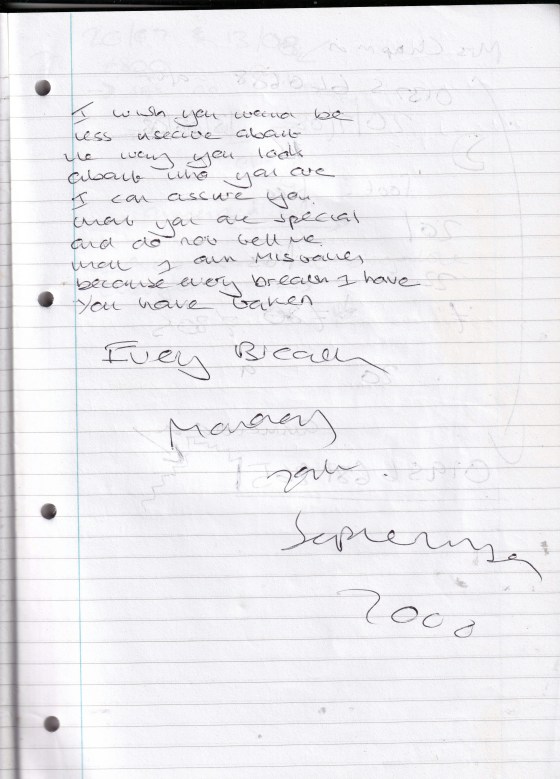 I wish you wanna be
less insecure about
the way you look
about who you are
I can assure you
that you are special
and do not tell me
that I am mistaken
because every breath I have
you have taken
Every Breath
Monday
September
2008